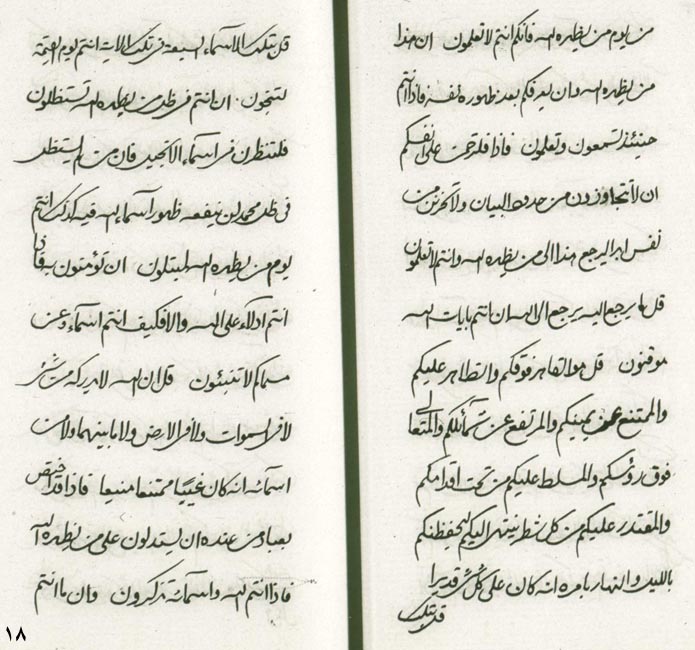 من يوم من يظهره الله فانكم انتم لا تعلمون ان هذا
من يظهره الله وان يعرفكم بعد ظهوره نفسه فاذا انتم
حينئذ تسمعون وتعلمون فاذا فلترحمن على انفسكم
ان لا تتجاوزون من حدود البيان ولا تحزنن من
نفس اجر اليرجع هذا الى من يظهره الله وانتم لا تعلمون
قل ما يرجع اليه يرجع الى الله ان انتم بايات الله
موقنون قل هو القاهر فوقكم والظاهر عليكم
والممتنع عن يمينكم والمرتفع عن شمائلكم والمتعالى
فوق رؤسكم والمسلط عليكم من تحت اقدامكم
والمقتدر عليكم من كل شطر ينتهى اليكم ليحفظنكم
بالليل والنهار بامره انه كان على كل شئ قديرا
قل بتلك
قل بتلك الاسماء السبعة فى تلك الاية انتم يوم القيمة
لتنجون ان انتم فى ظل من يظهره الله تستظلون
فلتنظرن فى اسماء الانجيل فان من لم يستظل
فى ظل محمد لن ينفعه ظهور اسماء الله فيه كذلك انتم
يوم من يظهره الله لتبتلون ان تؤمنون به فاذا
انتم ادلاء على الله والا فكيف انتم اسماء وعن
مسماكم لا تنبئون قل ان الله لا يدركه من شئ
لا فى السموات ولا فى الارض ولا ما بينهما ولا من
اسمائه انه كان غيبا ممتنعا منيعا فاذا قد اختص
بعباد من عنده ان يستدلون على من يظهره الله
فاذا انتم لله واسمائه تذكرون وان ما انتم
١٨